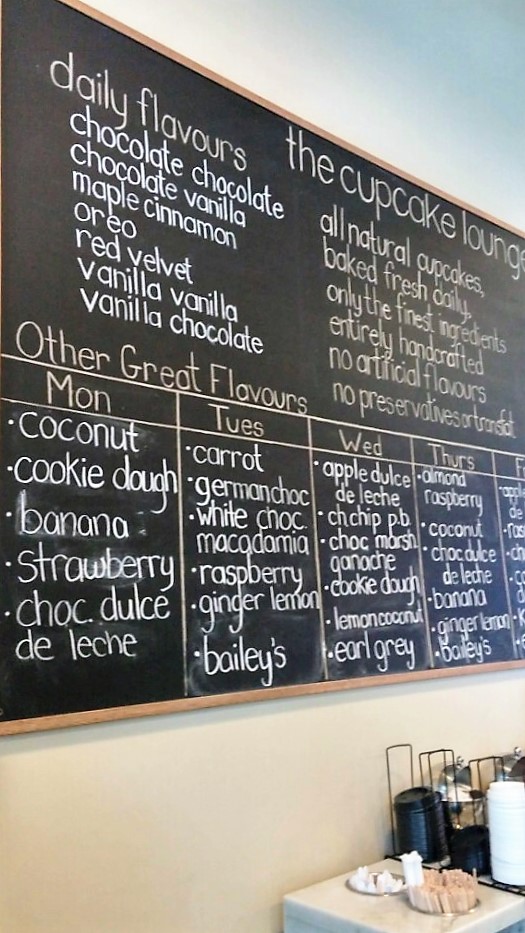 daily flavours
chocolate chocolate
chocolate vanilla
maple cinnamon
oreo
red velvet
vanilla vanilla
vanilla chocolate
the cupcake lounge
all natural cupcakes,
baked fresh daily,
only the finest ingredients
entirely handcrafted
no artificial flavours
no preservatives or transfat
Other Great Flavours
Mon
• coconut
• cookie dough
• banana
• strawberry
• choc. dulce
de leche
Tues
• carrot
• german choc
• white choc.
macadamia
• raspberry
• ginger lemon
• bailey's
Wed
• apple dulce
de leche
• ch.chip p.b.
• choc marsh
ganache
• cookie dough
• lemon coconut
• earl grey
Thurs
• almond
raspberry
• coconut
• choc dulce
de leche
• banana
• ginger lemon
• bailey's